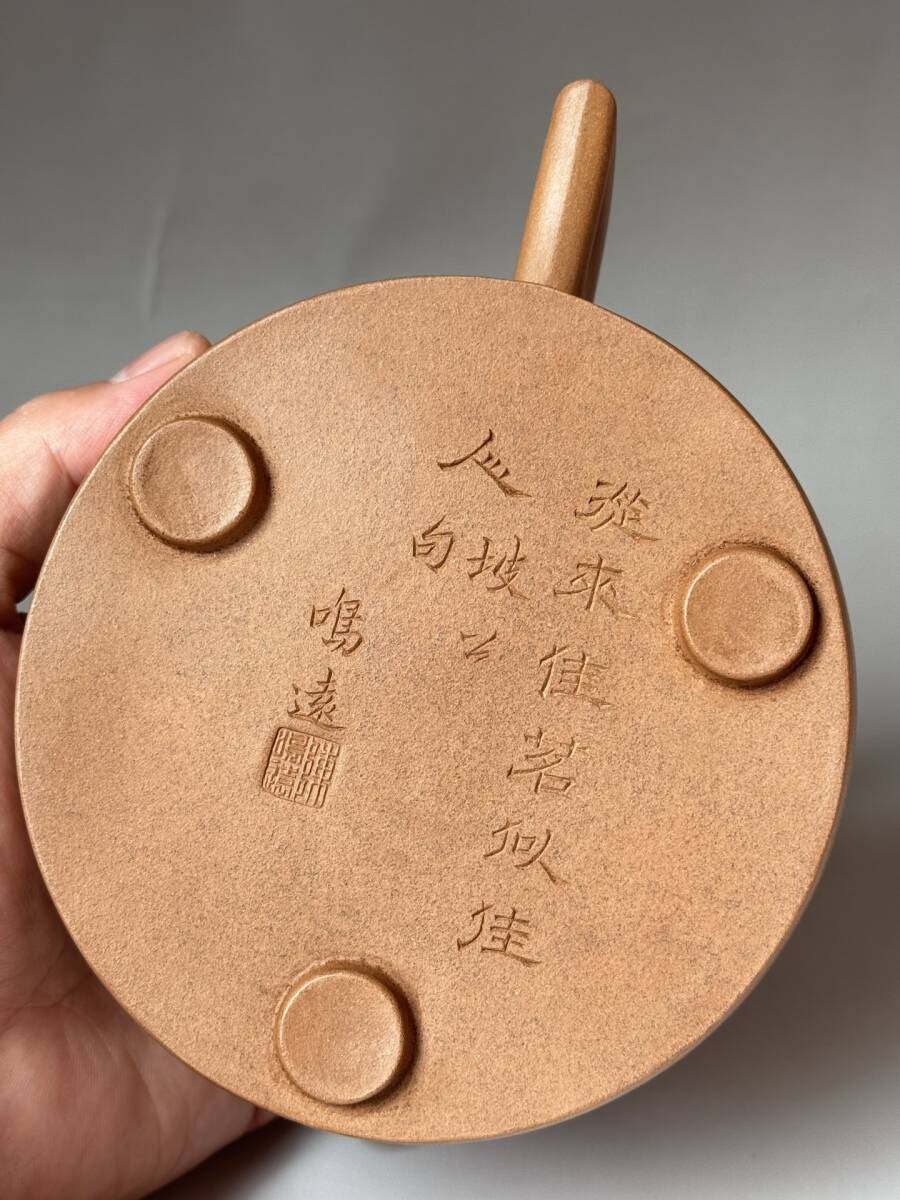 從來佳茗似佳
人坡公
句
鳴遠